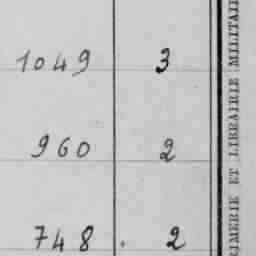 1049 3
960 2
748 . 2
RIMERIE ET LIBRAIRIE MILITAI